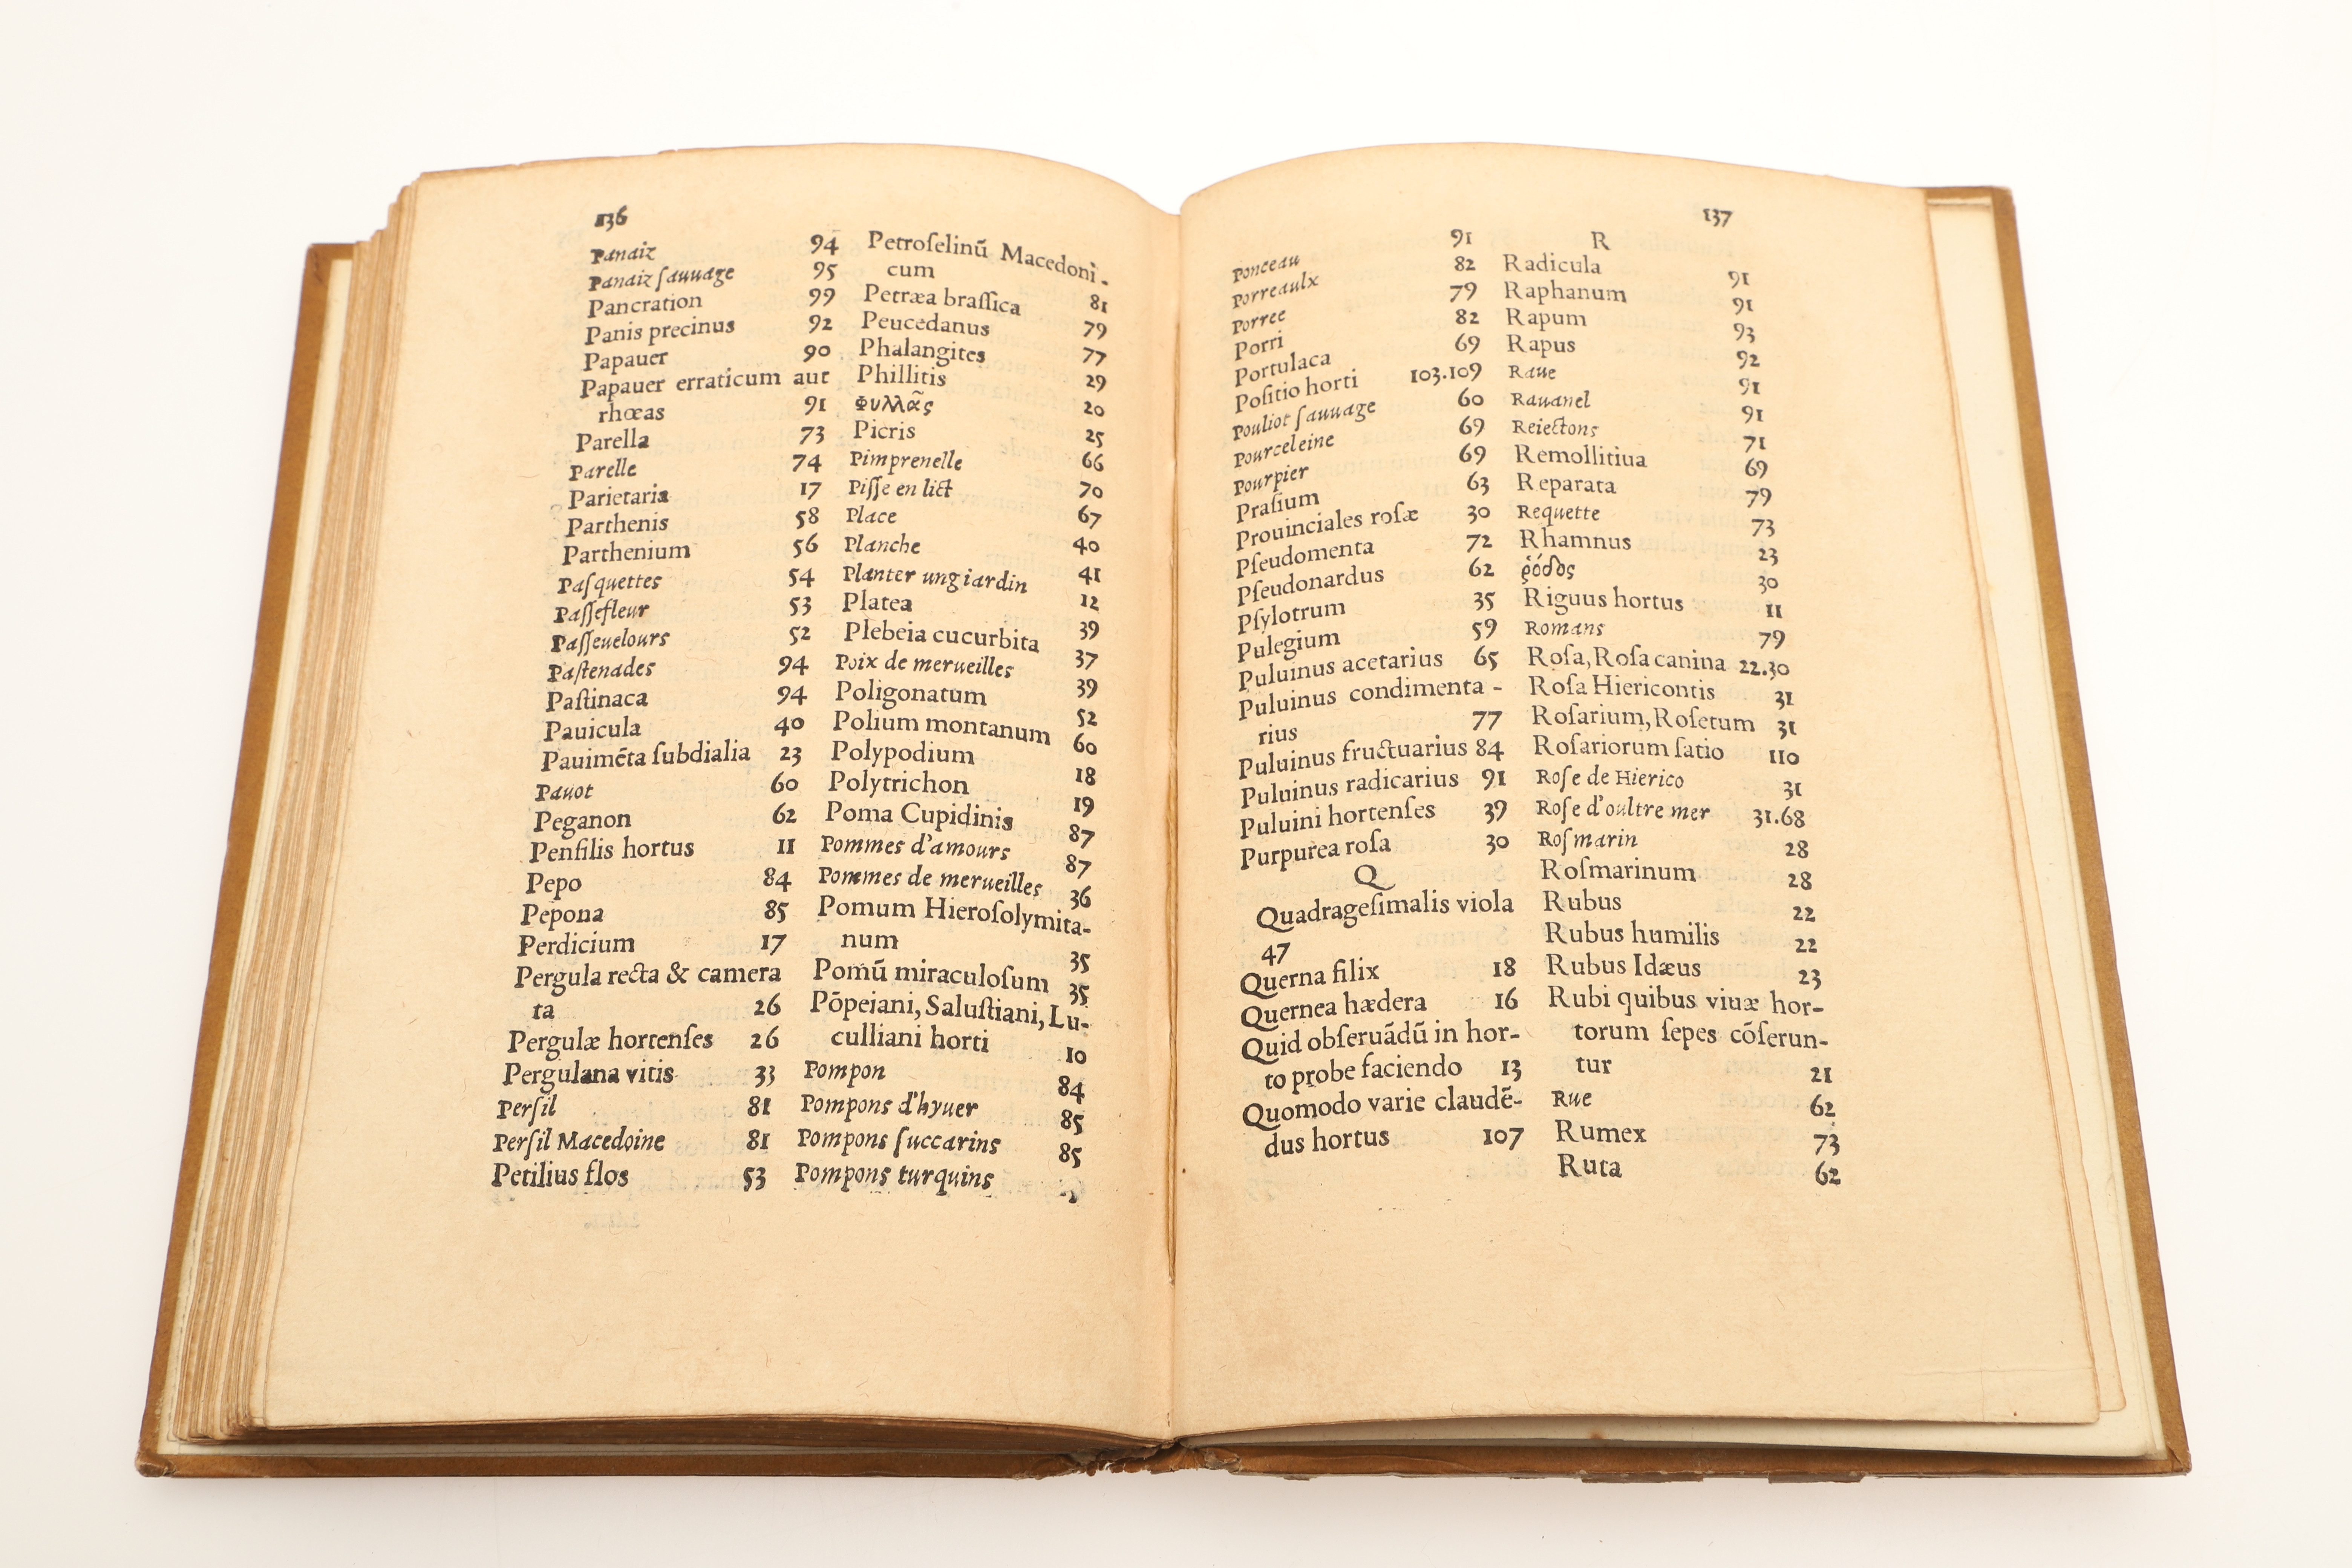 136
Panaiz 94
Panaiz ſauuage 95
Pancration 99
Panis precinus 92
Papauer 90
Papauer erraticum aut
rhœas 91
Parella 73
Parelle 74
Parietaria 17
Parthenis 58
Parthenium 56
Paſquettes 54
Paſſefleur 53
Paſſeuelours 52
Paſtenades 94
Paſtinaca 94
Pauicula 40
Pauimēta ſubdialia 23
Pauot 60
Peganon 62
Penſilis hortus 11
Pepo 84
Pepona 85
Perdicium 17
Pergula recta & camera
ta 26
Pergulæ hortenſes 26
Pergulana vitis 33
Perſil 81
Perſil Macedoine 81
Petilius flos 53
Petroſelinū Macedoni-
cum 81
Petræa braſſica 79
Peucedanus 77
Phalangites 29
Phillitis 20
Φυλλᾶς 25
Picris 66
Pimprenelle 70
Piſſe en lict 67
Place 40
Planche 41
Planter ung iardin 12
Platea 39
Plebeia cucurbita 37
Poix de merueilles 39
Poligonatum 52
Polium montanum 60
Polypodium 18
Polytrichon 19
Poma Cupidinis 87
Pommes d'amours 87
Pommes de merueilles 36
Pomum Hieroſolymita-
num 35
Pomū miraculoſum 35
Pōpeiani, Saluſtiani, Lu-
culliani horti 10
Pompon 84
Pompons d'hyuer 85
Pompons ſuccarins 85
Pompons turquins
137
Ponceau 91
Porreaulx 82
Porree 79
Porri 82
Portulaca 69
Poſitio horti 103.109
Pouliot ſauuage 60
Pourceleine 69
Pourpier 69
Praſium 63
Prouinciales roſæ 30
Pſeudomenta 72
Pſeudonardus 62
Pſylotrum 35
Pulegium 59
Puluinus acetarius 65
Puluinus condimenta-
rius 77
Puluinus fructuarius 84
Puluinus radicarius 91
Puluini hortenſes 39
Purpurea roſa 30
Q
Quadrageſimalis viola
47
Querna filix 18
Quernea hædera 16
Quid obſeruādū in hor-
to probe faciendo 13
Quomodo varie claudē-
dus hortus 107
R
Radicula 91
Raphanum 91
Rapum 93
Rapus 92
Raue 91
Rauanel 91
Reiectons 71
Remollitiua 69
Reparata 79
Requette 73
Rhamnus 23
ῥόδος 30
Riguus hortus 11
Romans 79
Roſa, Roſa canina 22.30
Roſa Hiericontis 31
Roſarium, Roſetum 31
Roſariorum ſatio 110
Roſe de Hierico 31
Roſe d'oultre mer 31.68
Roſmarin 28
Roſmarinum 28
Rubus 22
Rubus humilis 22
Rubus Idæus 23
Rubi quibus viuæ hor-
torum ſepes cōſerun-
tur 21
Rue 62
Rumex 73
Ruta 62